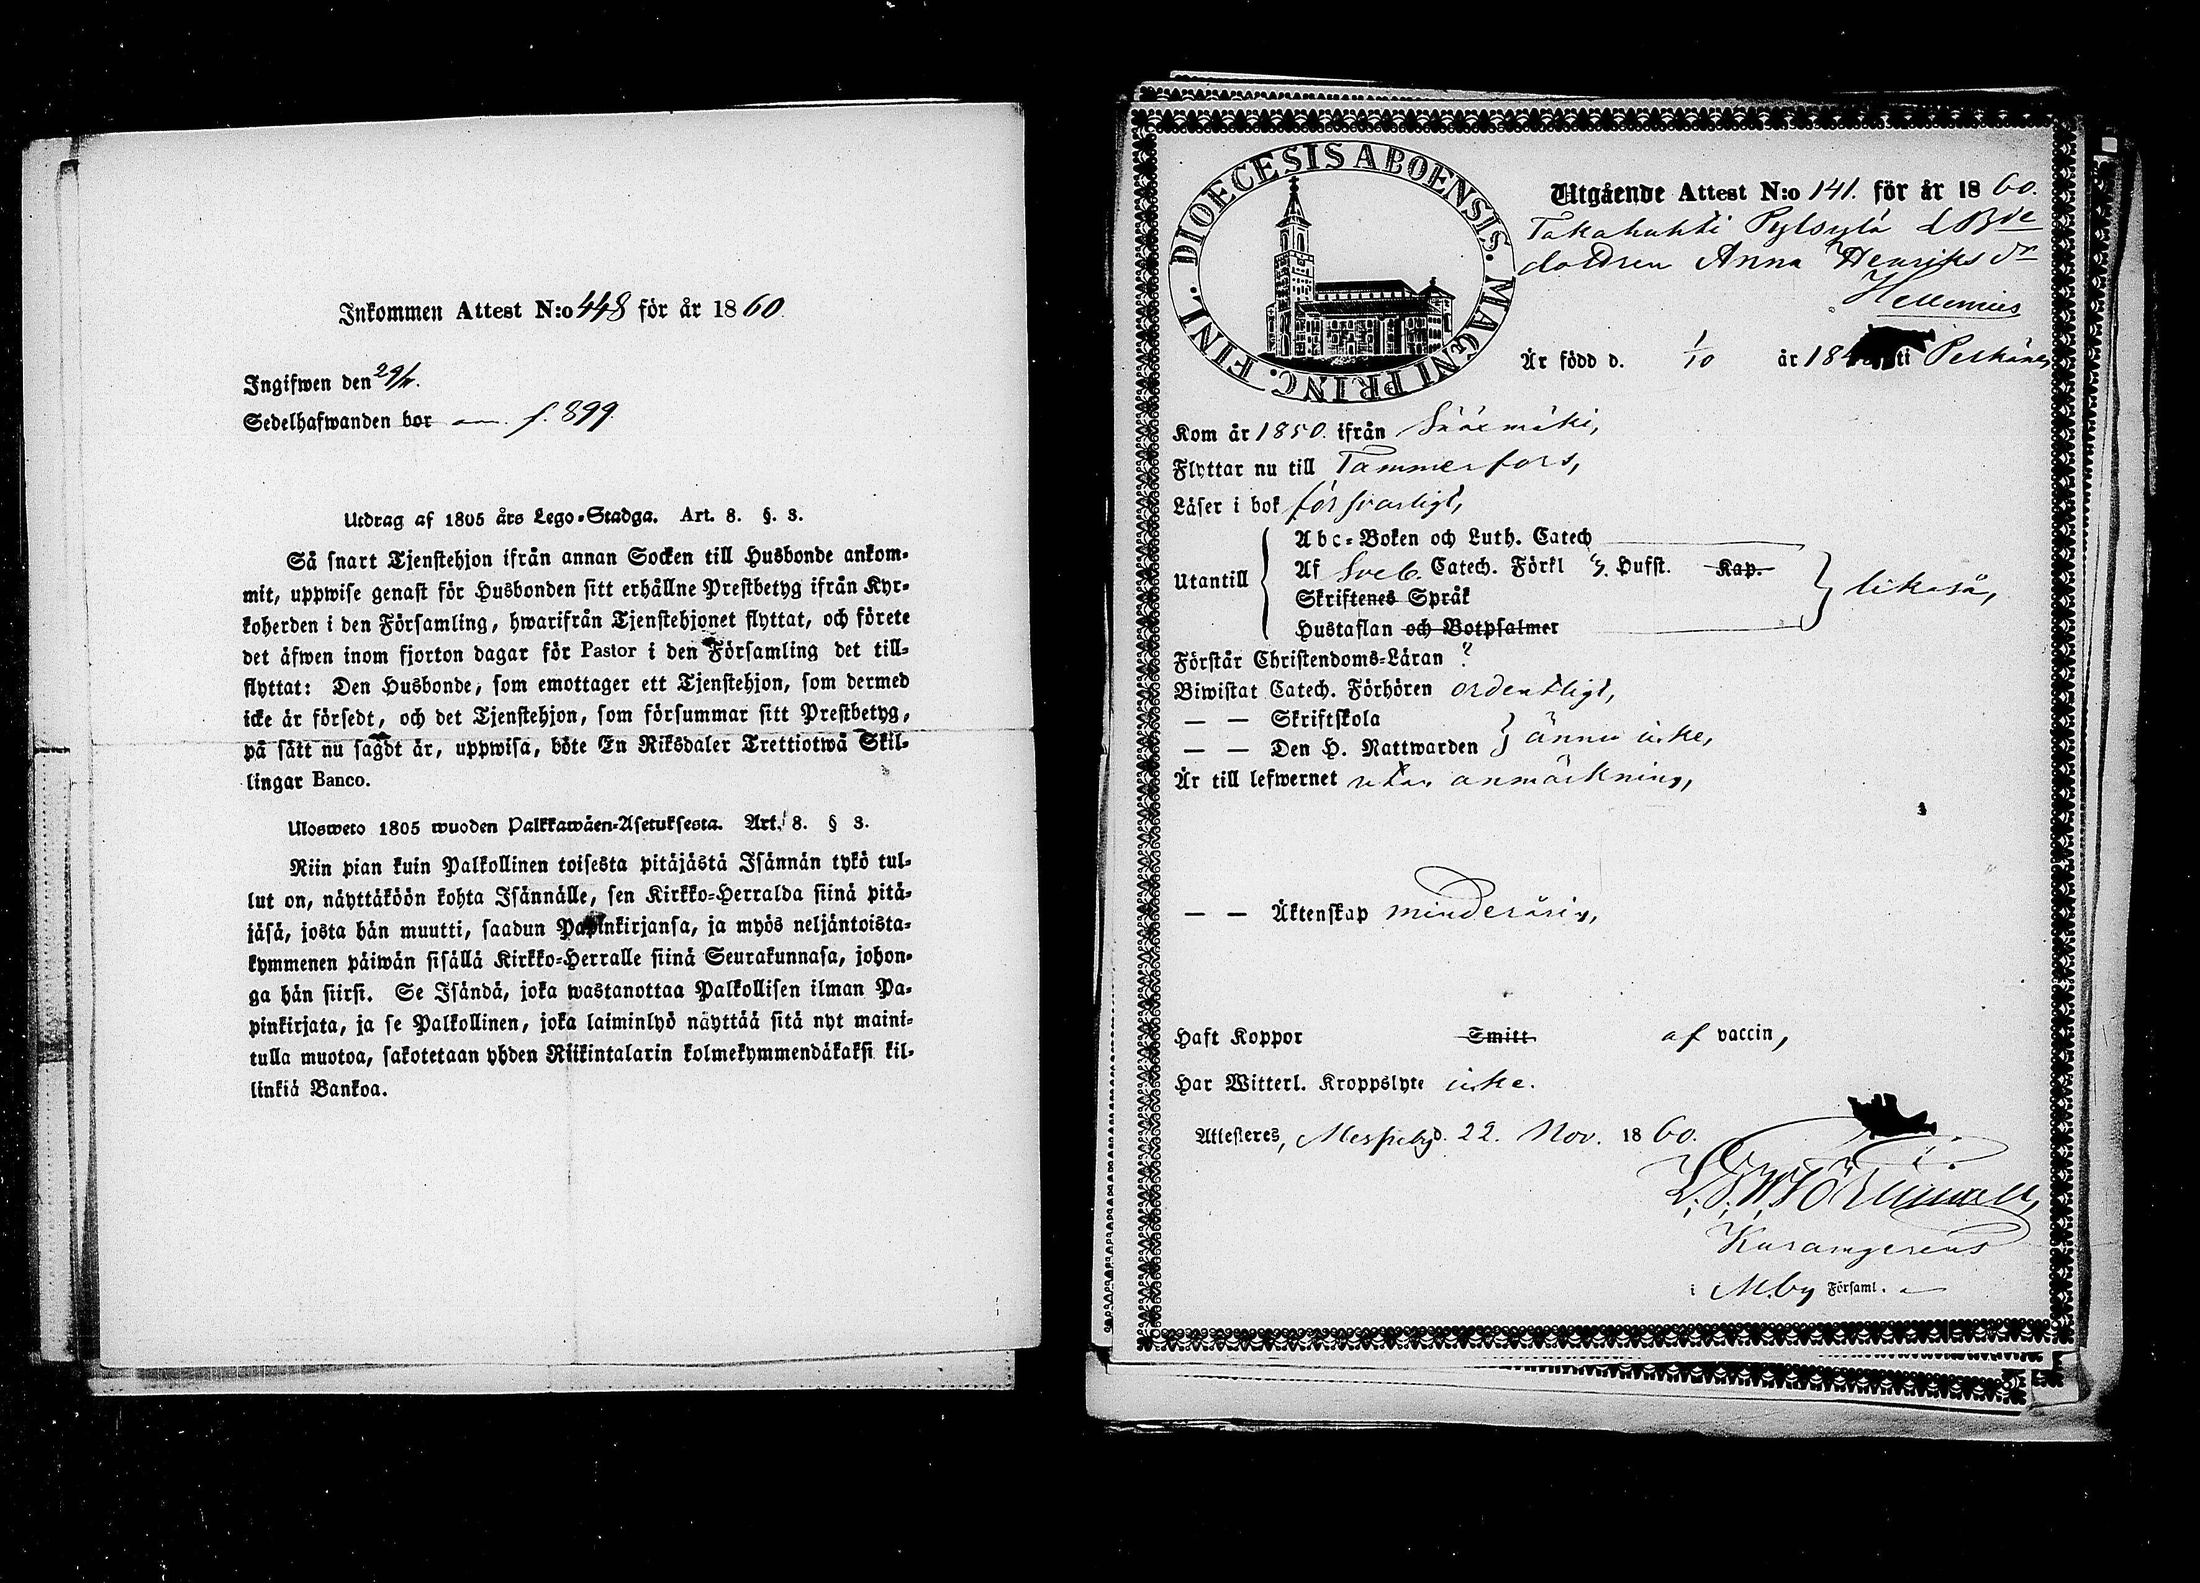 Inkommen Attest N:o 448 för år 1860.
Ingifwen den 29/11.
Sedelhafwanden bor f. 899
Utdrag af 1805 års Lego-Stadga. Art. 8. §. 3.
Så snart Tjenstehjon ifrån annan Socken till Husbonde ankom-
mit, uppwise genast för Husbonden sitt erhållne Prestbetyg ifrån Kyr-
koherden i den Församling, hwarifrån Tjenstehjonet flyttat, och förete
det äfwen inom fjorton dagar för Pastor i den Församling det till-
flyttat: Den Husbonde, som emottager ett Tjenstehjon, som dermed
icke är försedt, och det Tjenstehjon, som försummar sitt Prestbetyg,
på sätt nu sagdt är, uppwisa, böte En Riksdaler Trettiotwå Skil-
lingar Banco.
Ulosweto 1805 wuoden Palkkawäen-Asetuksesta. Art. 8. § 3.
Niin pian kuin Palkollinen toisesta pitäjästä Isännän tykö tul-
lut on, näyttäköön kohta Isännälle, sen Kirkko-Herralda siinä pitä-
jäsä, josta hän muutti, saadun Papinkirjansa, ja myös neljäntoista-
kymmenen päiwän sisällä Kirkko-Herralle siinä Seurakunnasa, johon-
ga hän siirsi. Se Isändä, joka wastanottaa Palkollisen ilman Pa-
pinkirjata, ja se Palkollinen, joka laiminlyö näyttää sitä nyt maini-
tulla muotoa, sakotetaan yhden Riikintalarin kolmekymmendäkaksi kil-
linkiä Bankoa.
DIOECESIS ABOENSIS. MAGNI PRINC. FINL.
Utgående Attest N:o 141. för år 1860.
Takahuhti Pylsylä
dottren Anna Henriksdr
Hellenius
Är född d. 1/10 år 184 ti Pelkäne,
Kom år 1850. ifrån Sääxmäki,
Flyttar nu till Tammerfors,
Läser i bok försvarligt,
Utantill
Abc-Boken och Luth. Catech
Af Sveb. Catech. Förkl 5. Hufst. Kap.
Skriftenes Språk
Hustaflan och Botpsalmer
likaså,
Förstår Christendoms-Läran ?
Biwistat Catech. Förhören ordentligt,
— — Skriftskola
— — Den H. Nattwarden ännu icke,
Är till lefwernet utan anmärkning,
— — Äktenskap minderårig,
Haft Koppor Smitt af vaccin,
Har Witterl. Kroppslyte icke.
Attesteres, Messuby d. 22. Nov. 1860.
i M.by Församl.